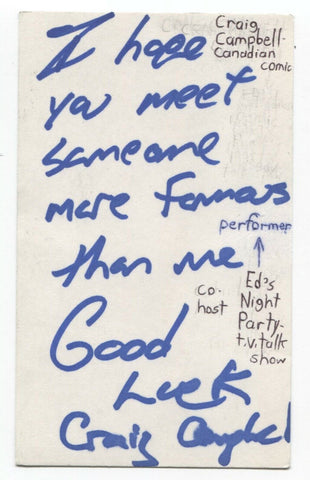 Craig
Campbell-
Canadian
comic
I hope
you meet
someone
more famous
performer
than me
Ed's
Night
Party-
t.v. talk
show
co-
host
Good
Luck
Craig Campbell